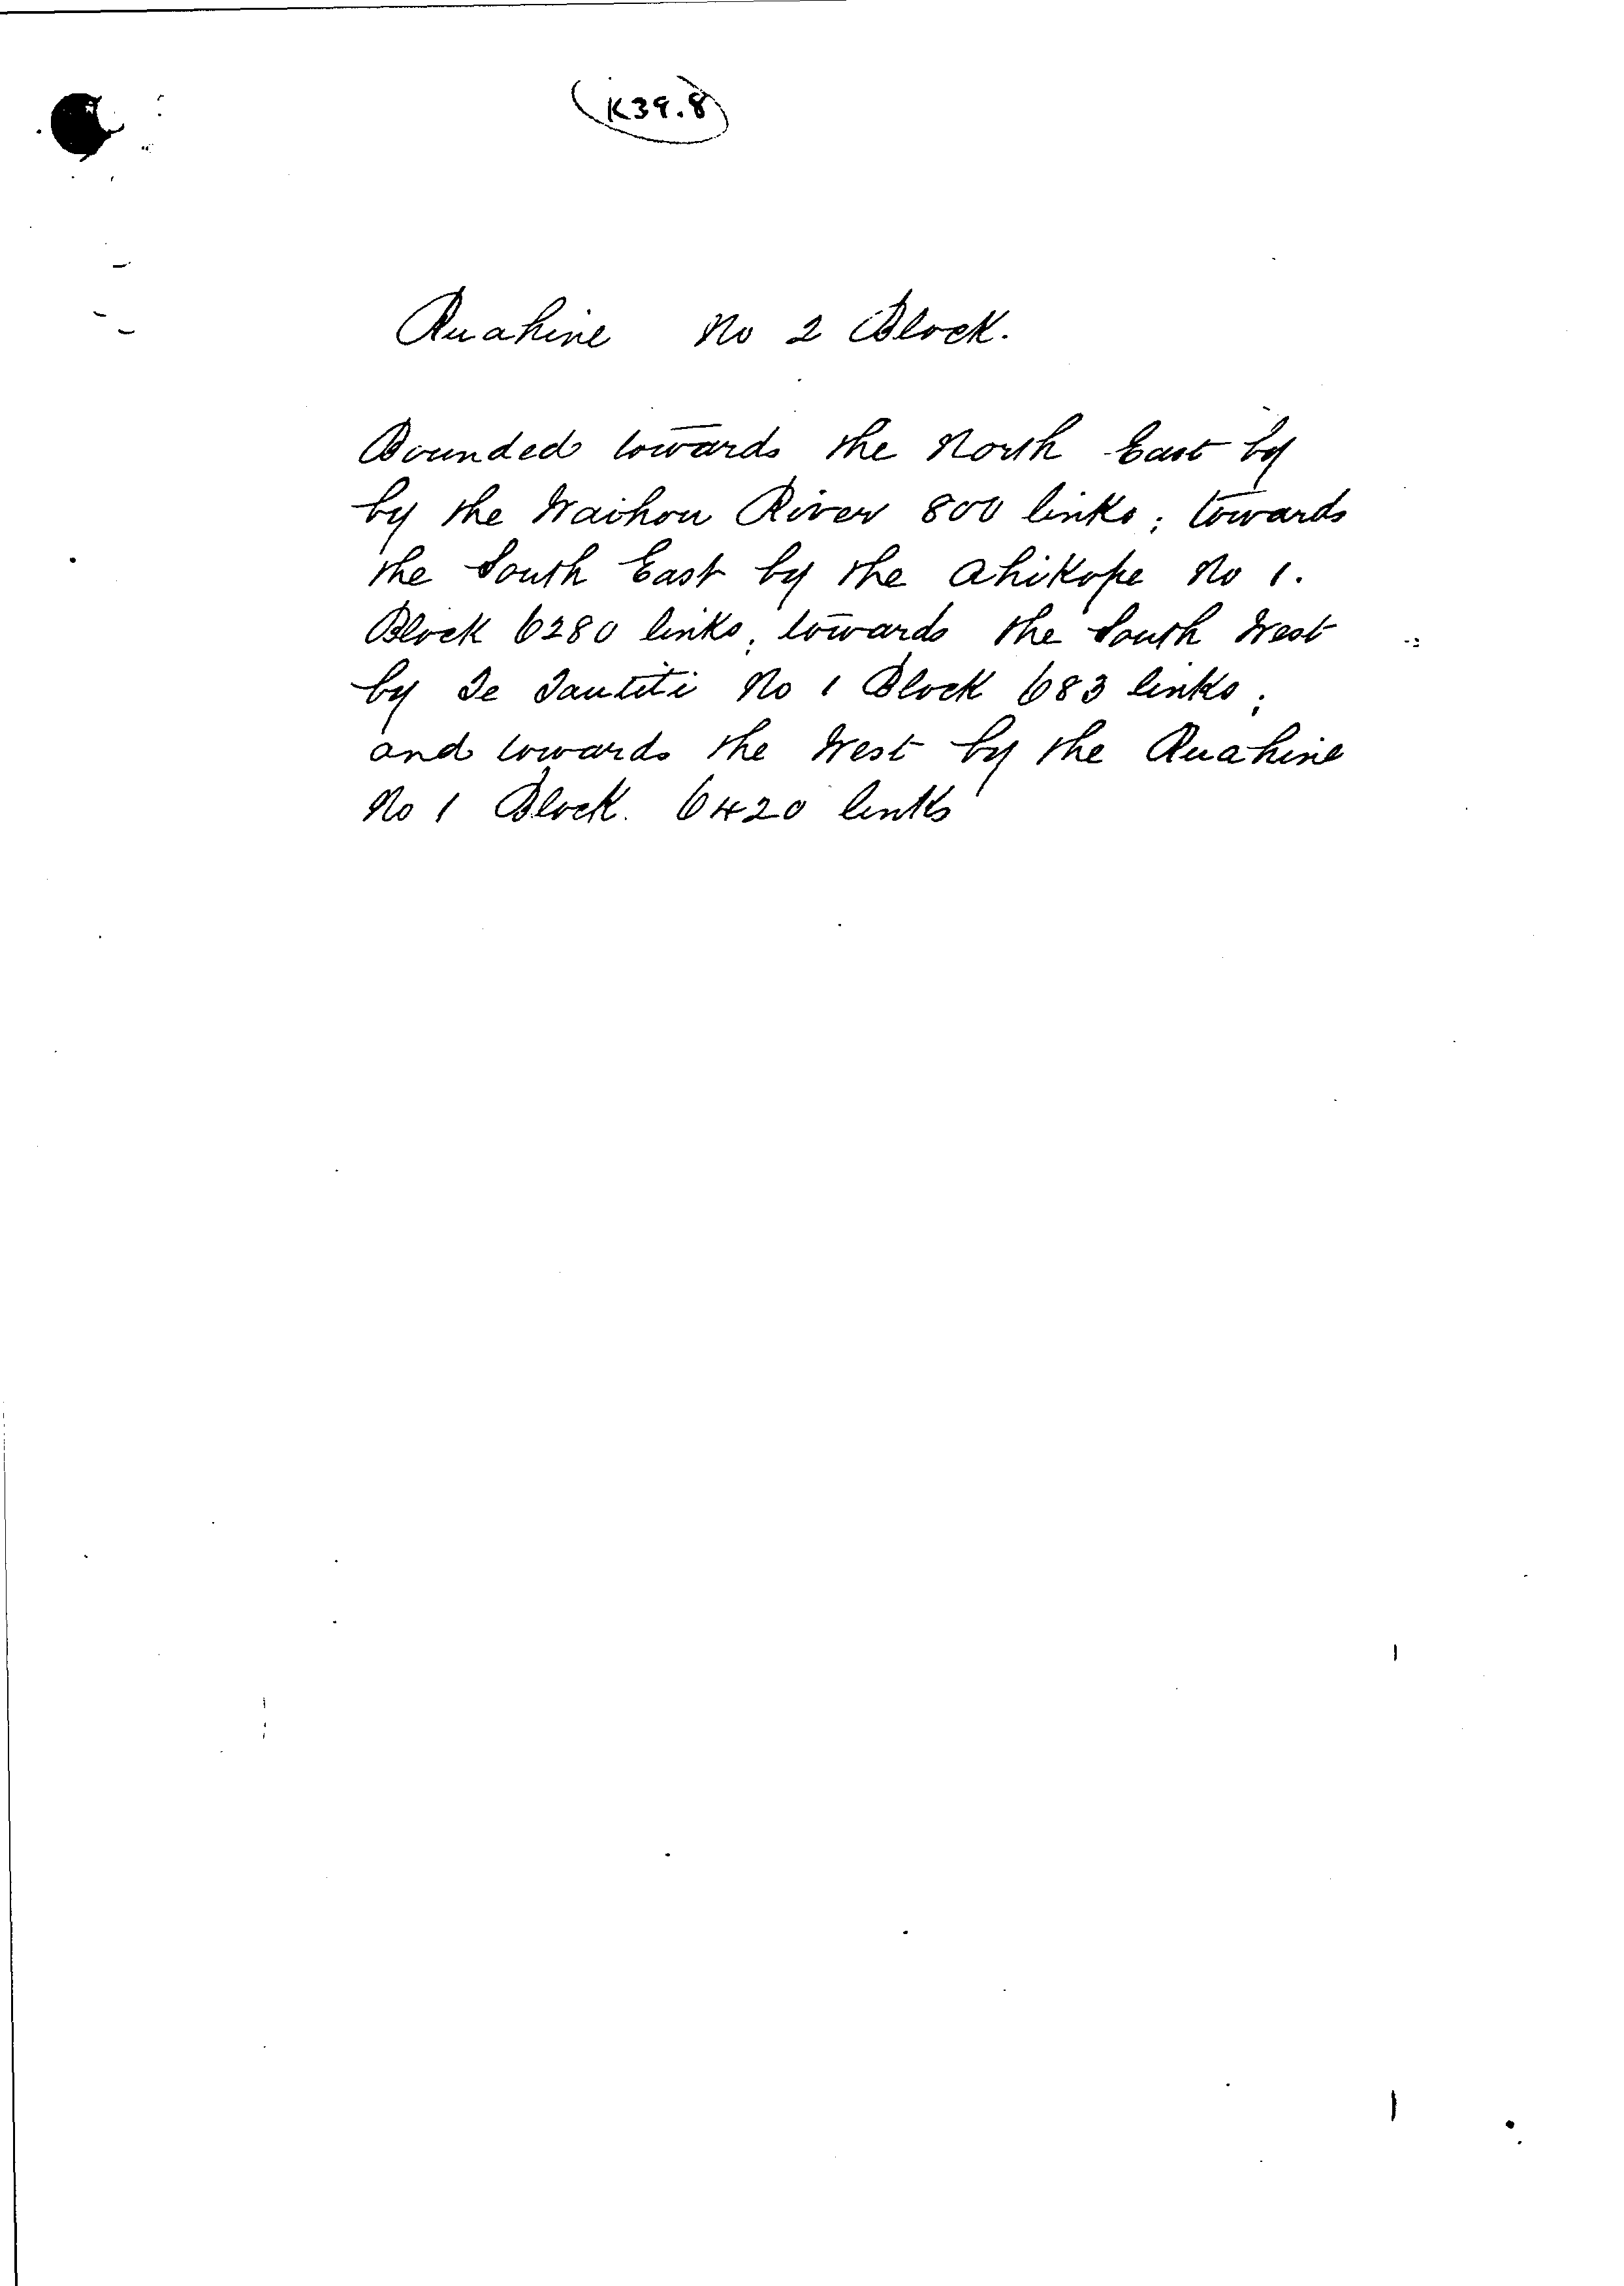 K39.8
Ruahine No 2 Block.
Bounded towards the North East by
by the Waihou River 800 links; towards
the South East by the Ahikope No 1.
Block 6280 links; towards the South West
by Te Tautiti No 1 Block 683 links;
and towards the West by the Ruahine
No 1 Block. 6420 links